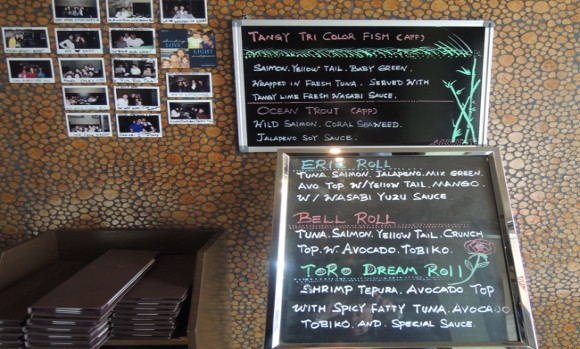 TANGY TRI COLOR FISH (APP)
SAIMON. YELLOW TAIL. BABY GREEN.
WRAPPED IN FRESH TUNA. SERVED WITH
TANGY LIME FRESH WASABI SAUCE.
OCEAN TROUT (APP)
WILD SAIMON. CORAL SEAWEED.
JALAPENO SOY SAUCE.
ERIE ROLL
TUNA. SAIMON. JALAPENO. MIX GREEN.
AVO TOP W/YELLOW TAIL. MANGO.
W/ WASABI YUZU SAUCE
BELL ROLL
TUNA. SAIMON. YELLOW TAIL. CRUNCH
TOP. W. AVOCADO. TOBIKO.
TORO DREAM ROLL
SHRIMP TEPURA. AVOCADO TOP
WITH SPICY FATTY TUNA. AVOCADO
TOBIKO. AND. SPECIAL SAUCE.
LOVE
LIGHT